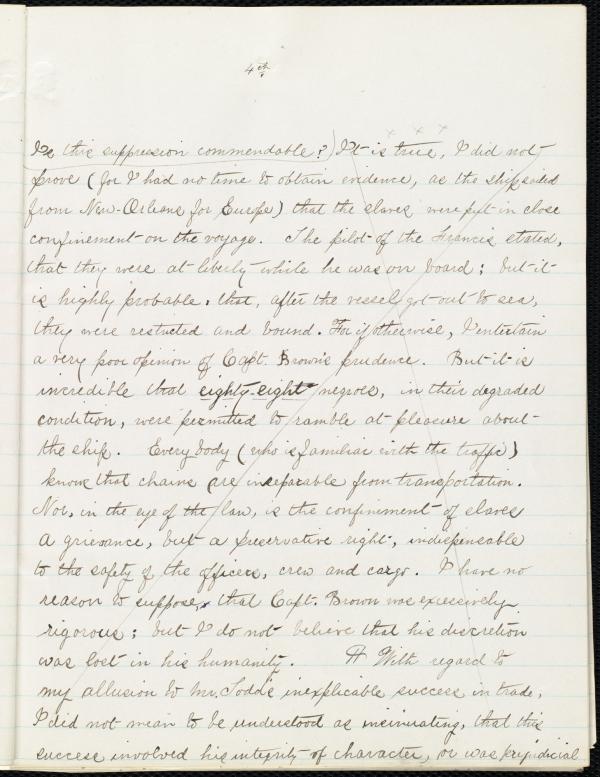 4th
Is this suppression commendable?) It is true, I did not
prove (for I had no time to obtain evidence, as the ship sailed
from New-Orleans for Europe) that the slaves were put in close
confinement on the voyage. The pilot of the Francis stated,
that they were at liberty while he was on board; but it
is highly probable, that, after the vessel got out to sea,
they were restricted and bound. For if otherwise, I entertain
a very poor opinion of Capt. Brown's prudence. But it is
incredible that eighty-eight negroes, in their degraded
condition, were permitted to ramble at pleasure about
the ship. Every body (who is familiar with the traffic)
knows that chains are inseparable from transportation.
Nor, in the eye of the law, is the confinement of slaves
a grievance, but a preservative right, indispensable
to the safety of the officers, crew and cargo. I have no
reason to suppose, that Capt. Brown was excessively
rigorous; but I do not believe that his discretion
was lost in his humanity. With regard to
my allusion to Mr. Todd's inexplicable success in trade,
I did not mean to be understood as insinuating, that this
success involved his integrity of character, or was prejudicial